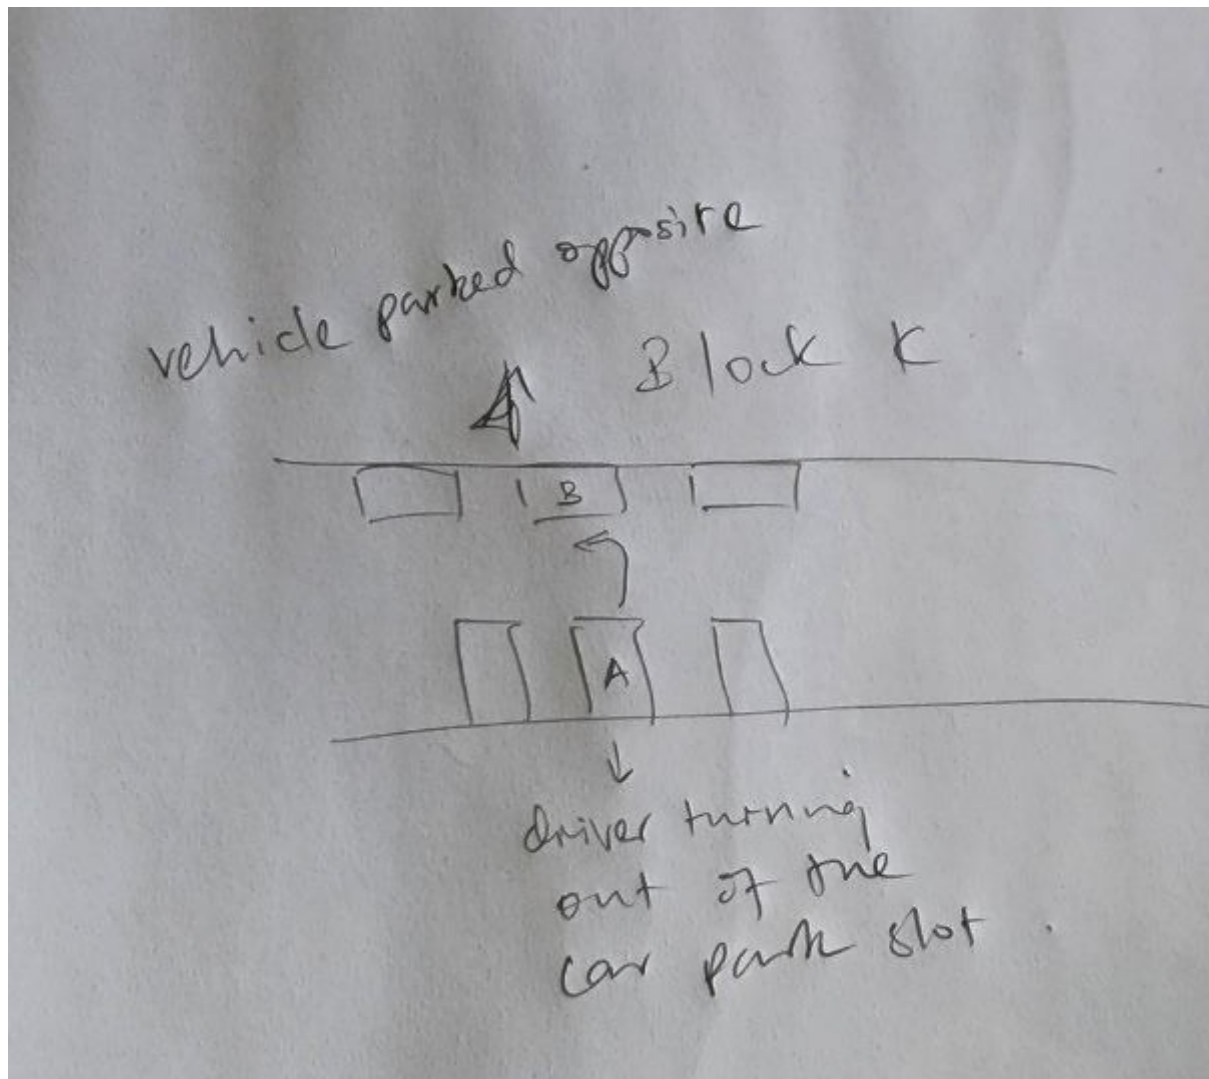 vehicle parked opposite
Block K
B
A
driver turning
out of the
car park slot.